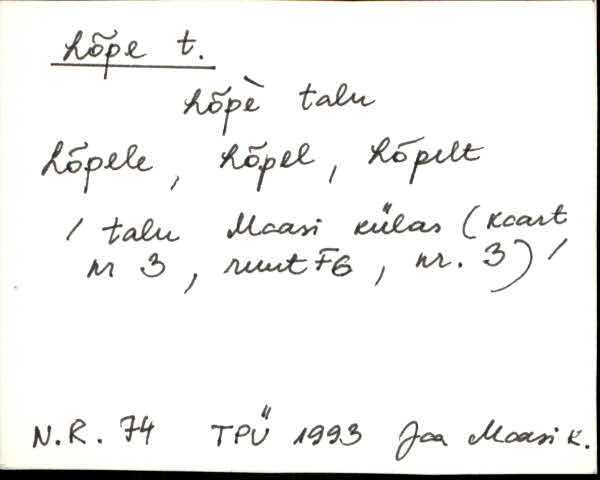 Lõpe t.
Lõpè talu
Lõpele, Lõpel, Lõpelt
/ talu Maasi külas (kaart
nr 3, ruut F6, nr. 3) /
N.R. 74 TPÜ 1993 Jaa Maasi k.